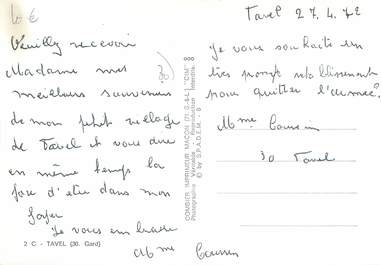 10 €
Tavel 27.4.72
Veuilly recevoir
Madame mes
meilleurs souvenirs
de mon petit village
de Tavel et vous dire
en même temps la
joie d'etre dans mon
foyer
Je vous embrasse
Mme
2 C - TAVEL (30. Gard)
COMBIER IMPRIMEUR MACON (S.-&-L.) "CIM"
Photographie Véritable - Reproduction Interdite.
© by S.P.A.D.E.M. - 8
Je vous souhaite un
très prompt rétablissement
pour quitter
Mme
30 Tavel